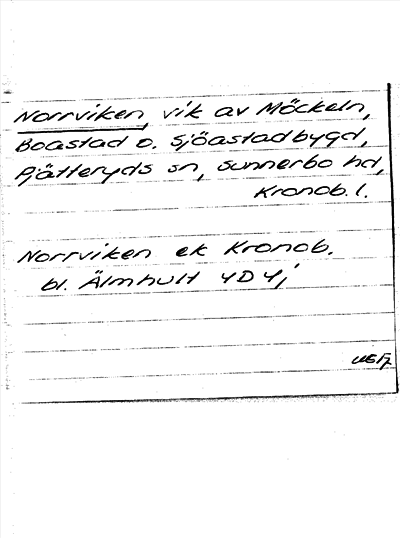 Norrviken, vik av Möckeln,
Boastad o. Sjöastadbygd,
Pjätteryds sn, Sunnerbo hd,
Kronob. l.
Norrviken ek Kronob.
bl. Älmhult 4D4j